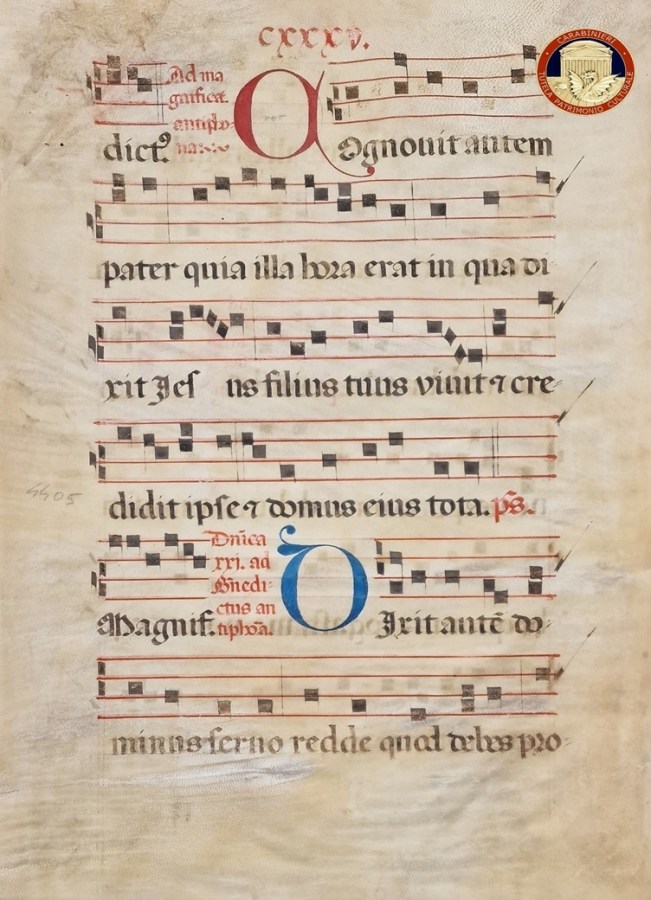 CXXXV.
CARABINIERI
TUTELA PATRIMONIO CULTURALE
Ad ma
gnificat.
antipho
na
dictꝰ.
A Ognouit autem
pater quia illa hora erat in qua di
xit Jes us filius tuus viuit ⁊ cre
didit ipse ⁊ domus eius tota. ps̄.
4405
Dn̄ica
XXI. ad
Bn̄edi
ctus an
tiphōa.
Magnif.
D Ixit autē do
minus seruo redde quod debes pro